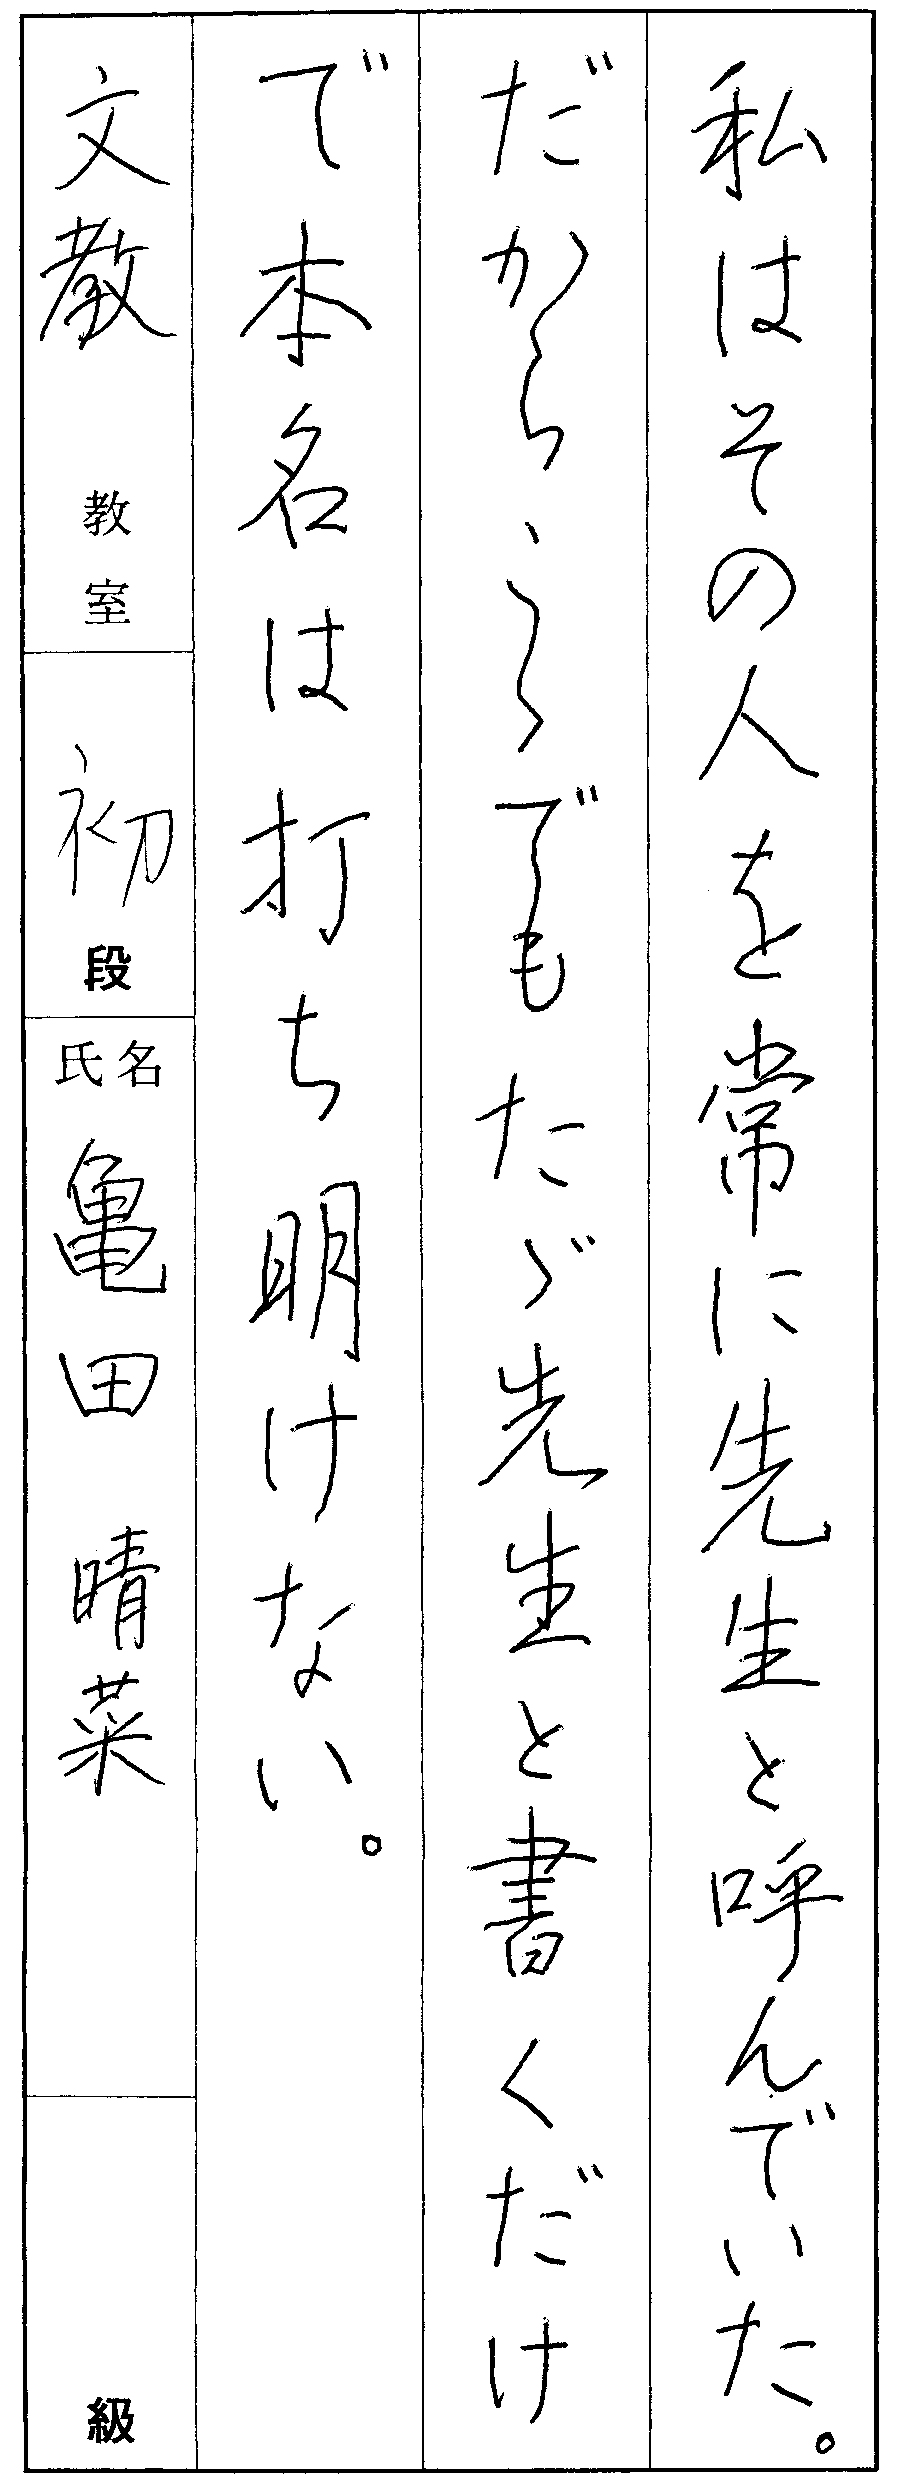 私はその人を常に先生と呼んでいた。
だから、こゝでもたゞ先生と書くだけ
で本名は打ち明けない。
文教 教室
初段
氏名 亀田 晴菜
級